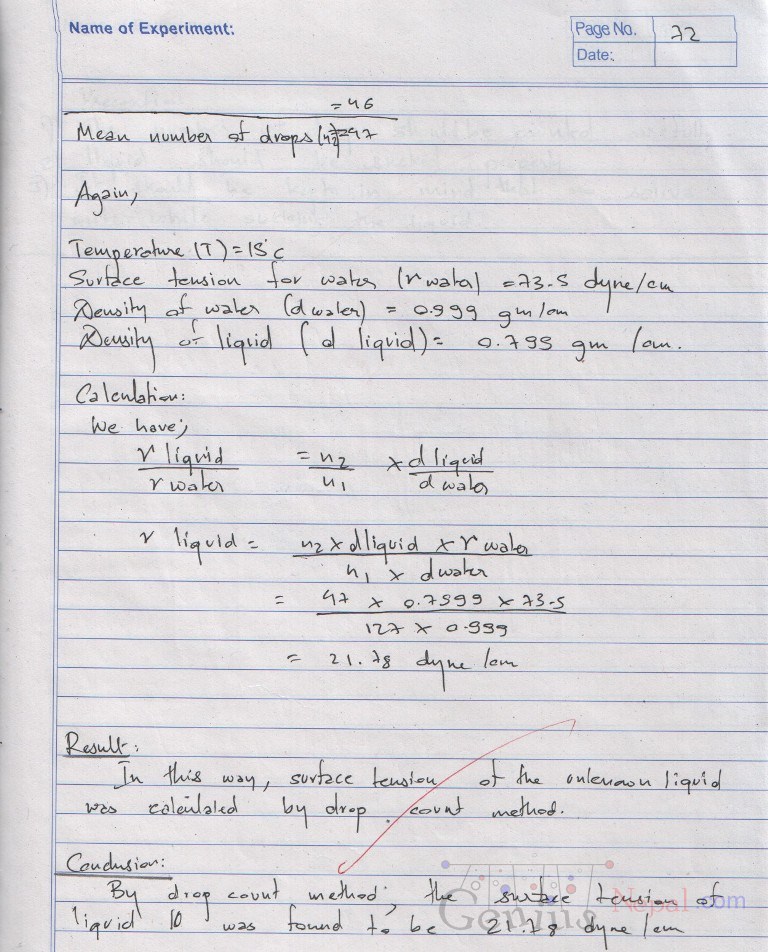 Name of Experiment:
Page No. 72
Date:
= 46
Mean number of drops (n2) = 47
Again,
Temperature (T) = 15°c
Surface tension for water (r water) = 73.5 dyne/cm
Density of water (d water) = 0.999 gm/cm
Density of liquid (d liquid) = 0.799 gm /cm.
Calculation:
We have;
r liquid / r water = n2 / n1 × d liquid / d water
r liquid = n2 × d liquid × r water / n1 × d water
= 47 × 0.7999 × 73.5 / 127 × 0.999
= 21.78 dyne /cm
Result:
In this way, surface tension of the unknown liquid
was calculated by drop count method.
Conclusion:
By drop count method, the surface tension of
liquid 10 was found to be 21.78 dyne /cm
Genius Nepal.com